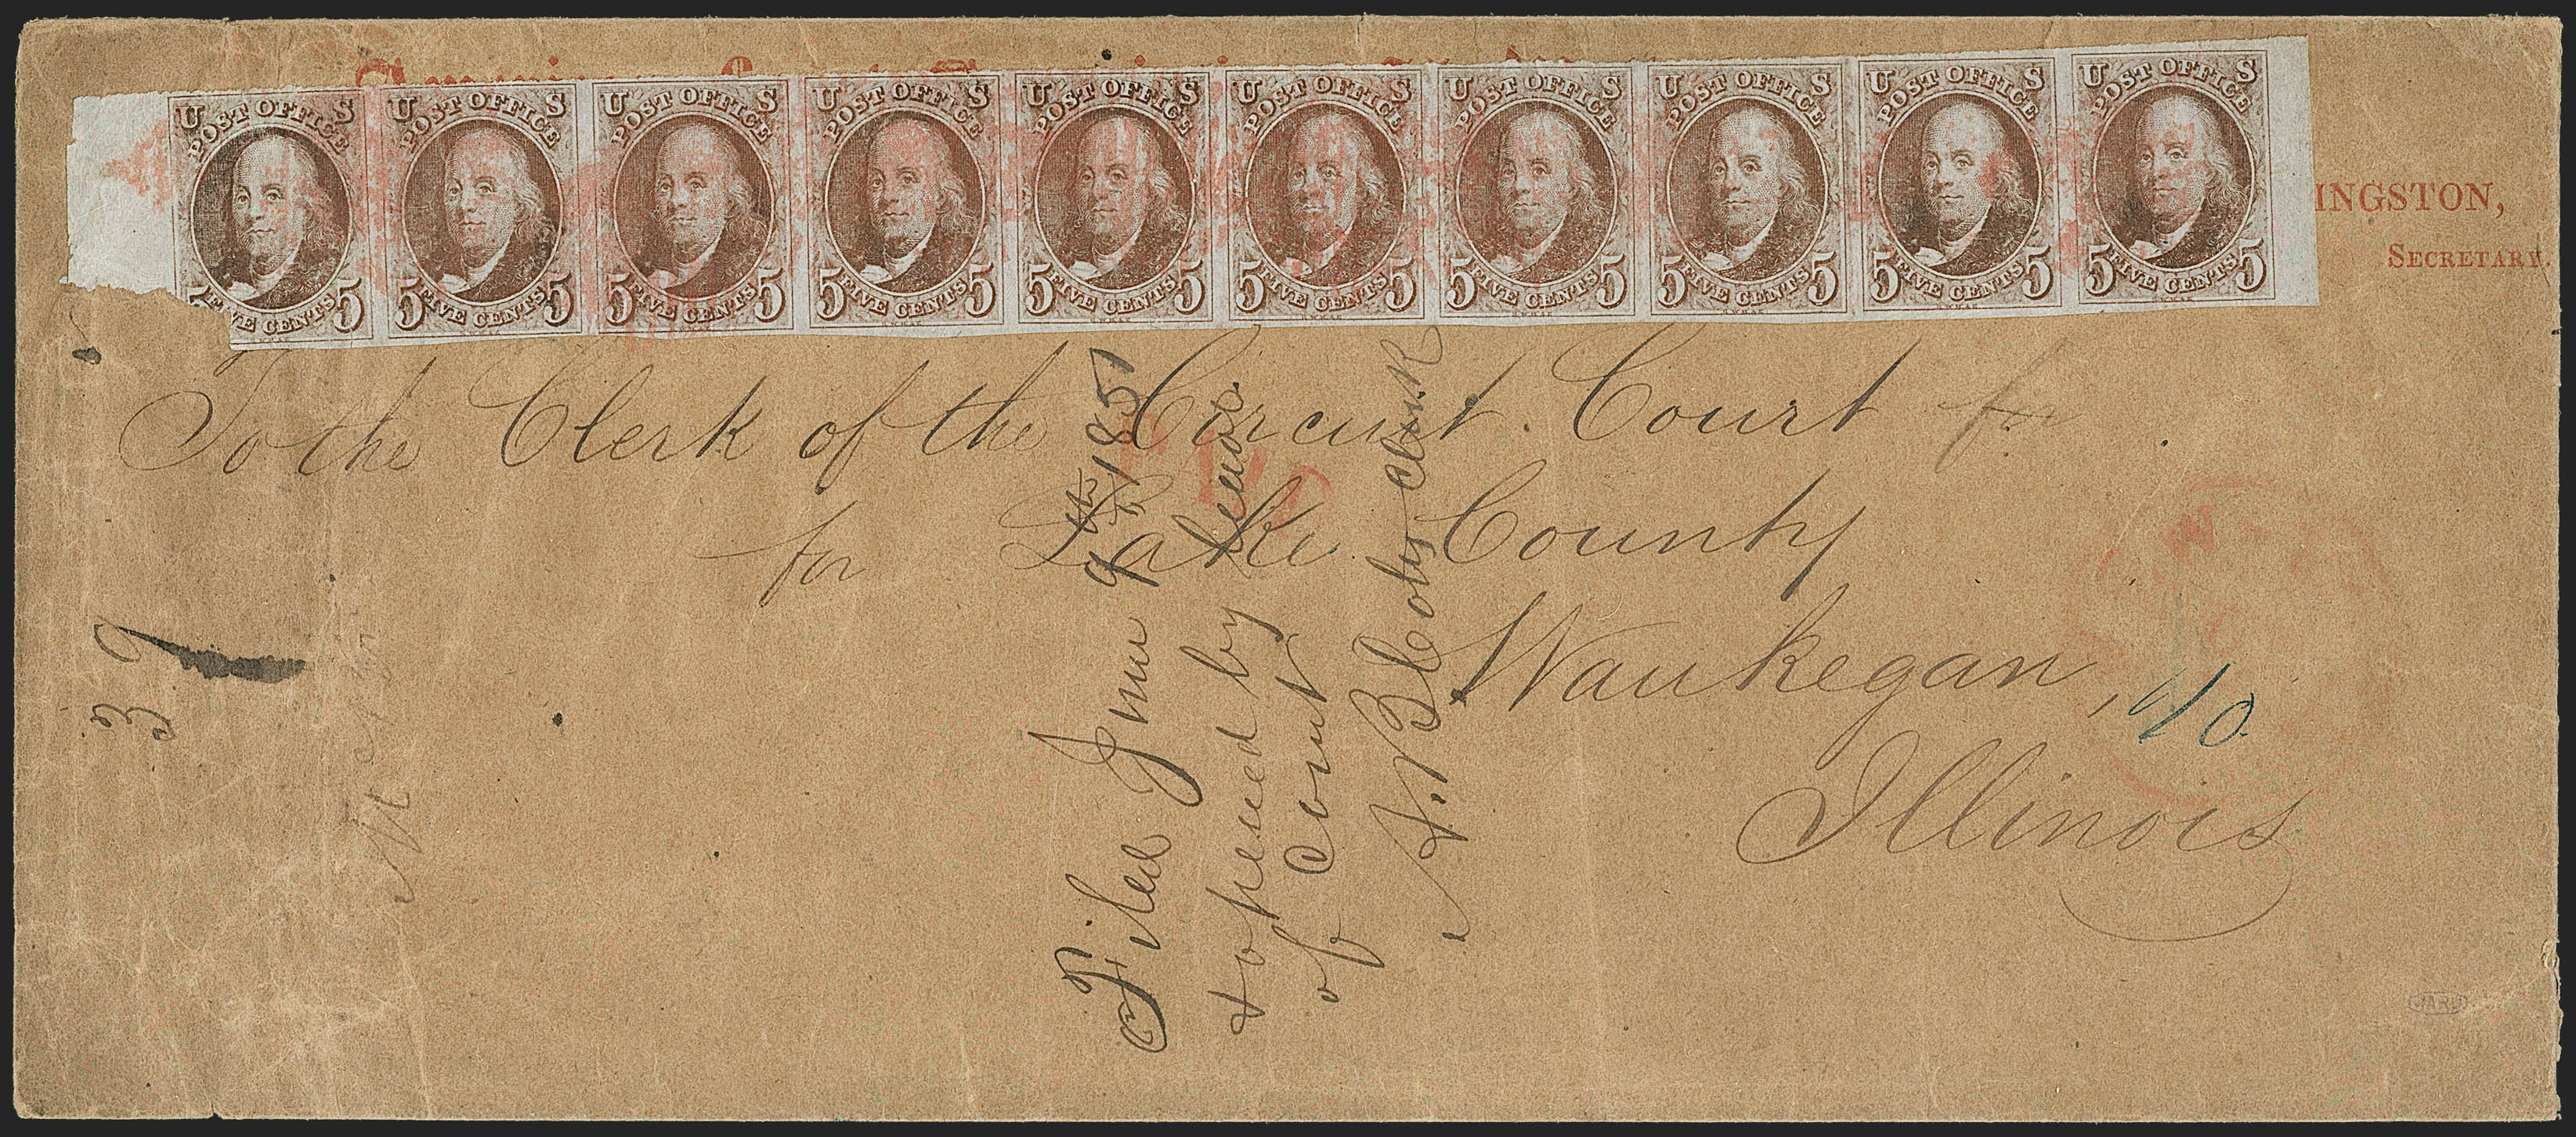 U S POST OFFICE 5 FIVE CENTS 5
U S POST OFFICE 5 FIVE CENTS 5
U S POST OFFICE 5 FIVE CENTS 5
U S POST OFFICE 5 FIVE CENTS 5
U S POST OFFICE 5 FIVE CENTS 5
U S POST OFFICE 5 FIVE CENTS 5
U S POST OFFICE 5 FIVE CENTS 5
U S POST OFFICE 5 FIVE CENTS 5
U S POST OFFICE 5 FIVE CENTS 5
U S POST OFFICE 5 FIVE CENTS 5
INGSTON,
SECRETARY.
To the Clerk of the Circuit Court for
PAID
for Lake County
Waukegan,
Illinois
Filed June 9th 1851
& opened by
of Court
A. B. Coty Clerk
39